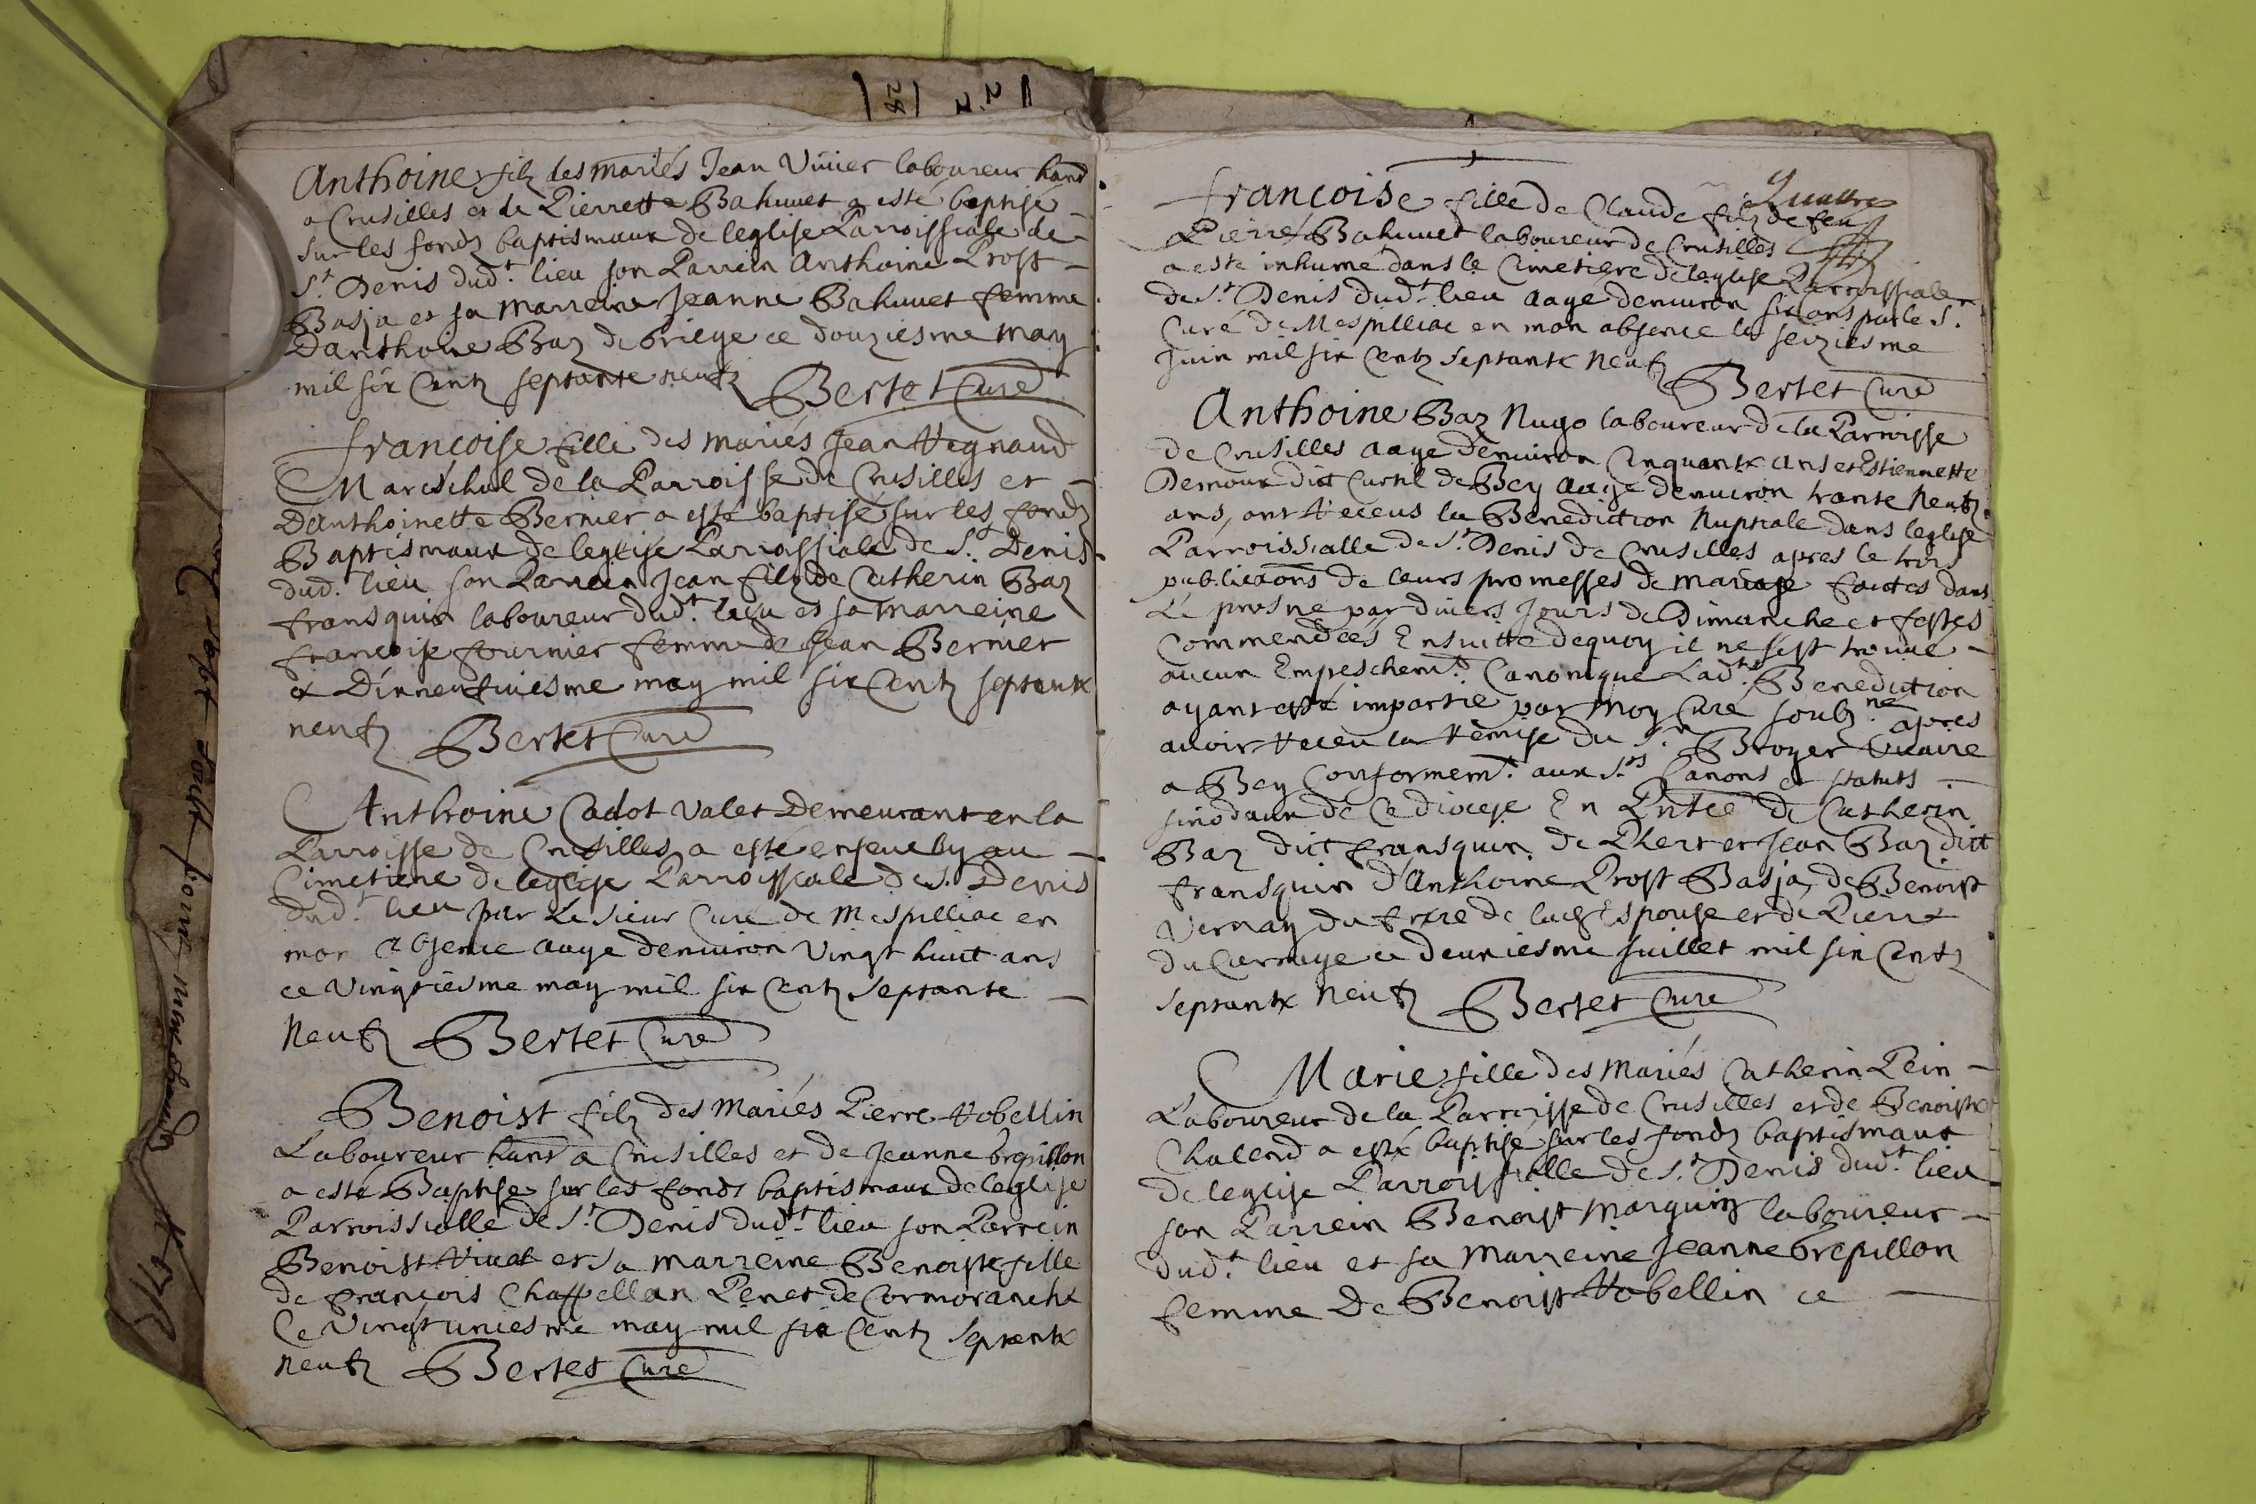 Anthoine filz des mariés Jean Vivier laboureur hand
a Crusilles et de Pierrette Bahuuet a esté baptisé
sur les fondz baptismaux de leglise Parroissiale de
St. Denis dudt. lieu son Parrein Anthoine Prost
Basja et sa Marreine Jeanne Bahuuet femme
Danthoine Baz de briege ce douziesme may
mil six Centz septante neufz Bertet Curé
francoise fille des mariés Jean Regnaud
Mareschal de la Parroisse de Crusilles et
Danthoinette Bernier a esté baptisé sur les fondz
Baptismaux de leglise Parroissiale de St. Denis
dudt. lieu son Parrein Jean filz de Catherin Baz
fransquin laboureur dudt. lieu et sa marreine
francoise fournier femme de Jean Bernier
ce Dixneufuiesme may mil six Centz septante
neufz Bertet Curé
Anthoine Cadot valet Demeurant en la
Parroisse de Crusilles a esté enseuely au
Cimetiere de leglise Parroissiale de St. Denis
dudt. lieu par Le sieur Curé de Mespilliac en
mon absence aage denuiron vingt huict ans
ce vingtiesme may mil six Centz septante
Neufz Bertet Curé
Benoist filz des Mariés Pierre Robellin
Laboureur hant a Crusilles et de Jeanne brepillon
a esté Baptisé sur les fonds baptismaux de leglise
Parroissialle de St. Denis dudt. lieu son Parrein
Benoist et sa marreine Benoiste fille
de françois Chappellan Penet de Cormoranche
Ce Vingtuniesme may mil six Centz septante
neufz Bertet Curé
Quattre
françoise fille de Claude filz de feu
Pierre Bahuuet laboureur de Crusilles
a este inhumé dans le Cimetiere de leglise Parroissiale
de St. Denis dudt. lieu aage denuiron six ans par le Sr.
Curé de Mespilliac en mon absence le seiziesme
Juin mil six Centz septante neufz Bertet Curé
Anthoine Baz Nugo laboureur de la Parroisse
de Crusilles aage denuiron Cinquante ans et Estiennette
Demoux dict Curtil de Bey aagé denuiron trante Neufz
ans, ont Receus la Benediction Nuptiale dans leglise
Parroissialle de St. Denis de Crusilles apres le trois
publica͠ons de leurs promesses de mariage faictes dans
Le prosne par diuers Jours de Dimanche et festes
Commendées Ensuitte dequoy il ne sest trouué
aucun Empeschemt. Canonique Ladte. Benediction
ayant esté impartie par Moy Curé soubz.né apres
auoir Receu la Remise du Sr. Broyer Vicaire
a Bey Conformemt. aux Sts. Canons et statuts
sinodaux de Ce diocese En Pntce de Catherin
Baz dict fransquin de Lhert et Jean Baz dict
fransquin d'Anthoine Prost Basja, de Benoist
Vernay du frere de lad. Espouse et de Pierre
ce deuxiesme Juillet mil six Centz
septante Neufz Bertet Curé
Marie fille des Mariés Catherin Pein
Laboureur de la Parroisse de Crusilles et de Benoiste
Chalend a esté baptisé sur les fondz baptismaux
de leglise Parroissialle de St. Denis dudt. lieu
son Parrein Benoist Marguin laboureur
dudt. lieu et sa Marreine Jeanne brepillon
femme De Benoist Robellin ce